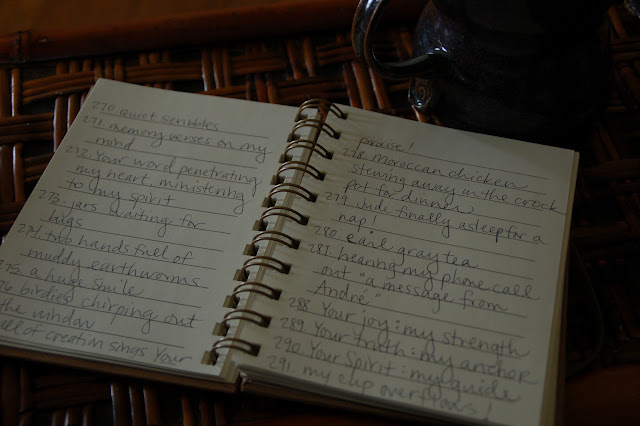 270 quiet scribbles
271. memory verses on my
mind
272. Your word penetrating
my heart, ministering
to my spirit
273. jars waiting for
hugs
274. two hands full of
muddy earthworms
275. a huge smile
76 birdies chirping out
the window
all of creation sings Your
praise!
278. moroccan chicken
stewing away in the crock
pot for dinner
279. Judi finally asleep for a
nap!
280. earl gray tea
281. hearing my phone call
out "a message from
Andre"
288. Your joy: my strength
289. Your truth: my anchor
290. Your Spirit: my guide
291. my cup overflows!